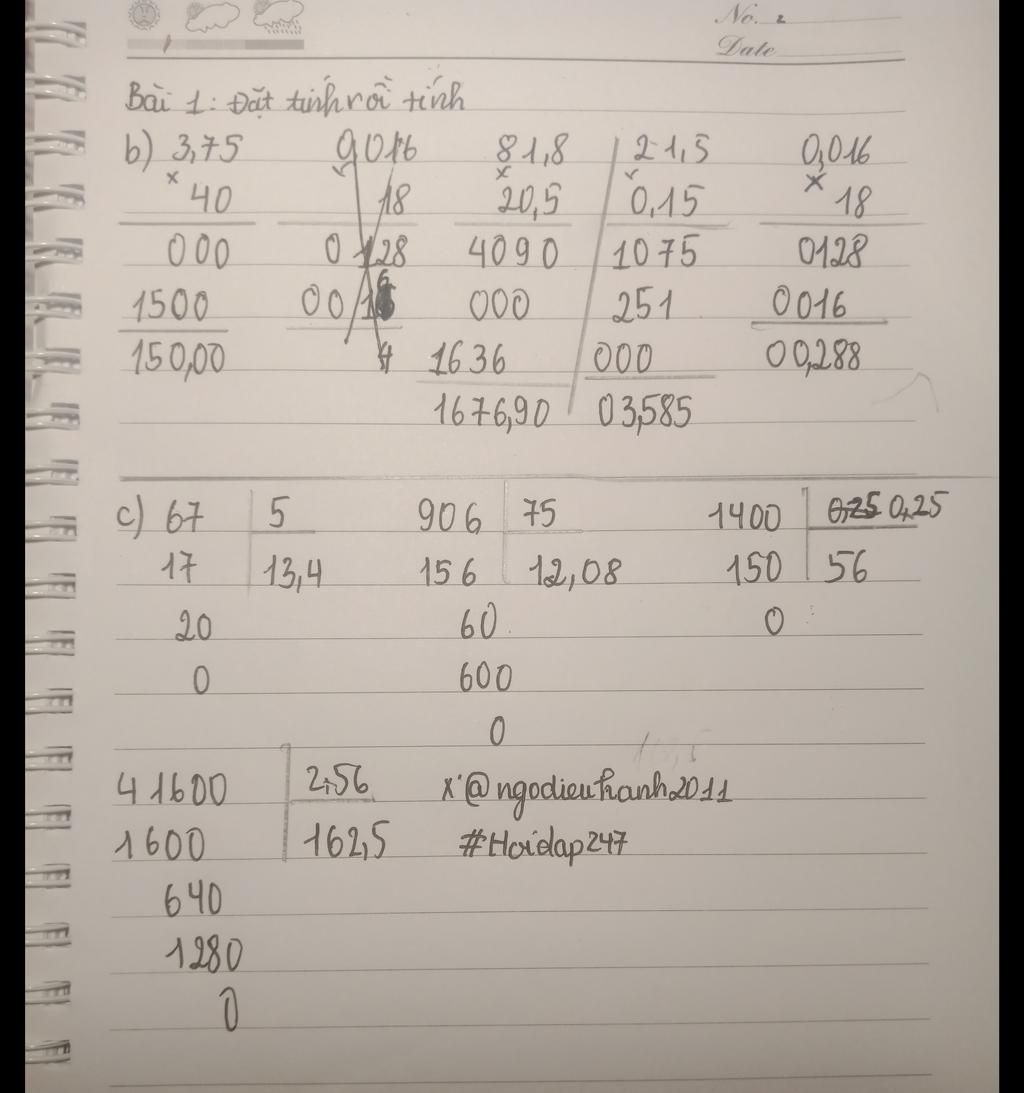 No. 2
Date
Bài 1: Đặt tính rồi tính
b) 3,75 0,016 81,8 21,5 0,016
x x x x x
40 18 20,5 0,15 18
000 0128 4090 1075 0128
1500 001 000 251 0016
150,00 1636 000 00,288
1676,90 03,585
c) 67 5 906 75 1400 0,25 0,25
17 13,4 156 12,08 150 56
20 60 0
0 600
0
41600 2,56 x @ngodieukhanh2011
1600 162,5 #Hoidap247
640
1280
0